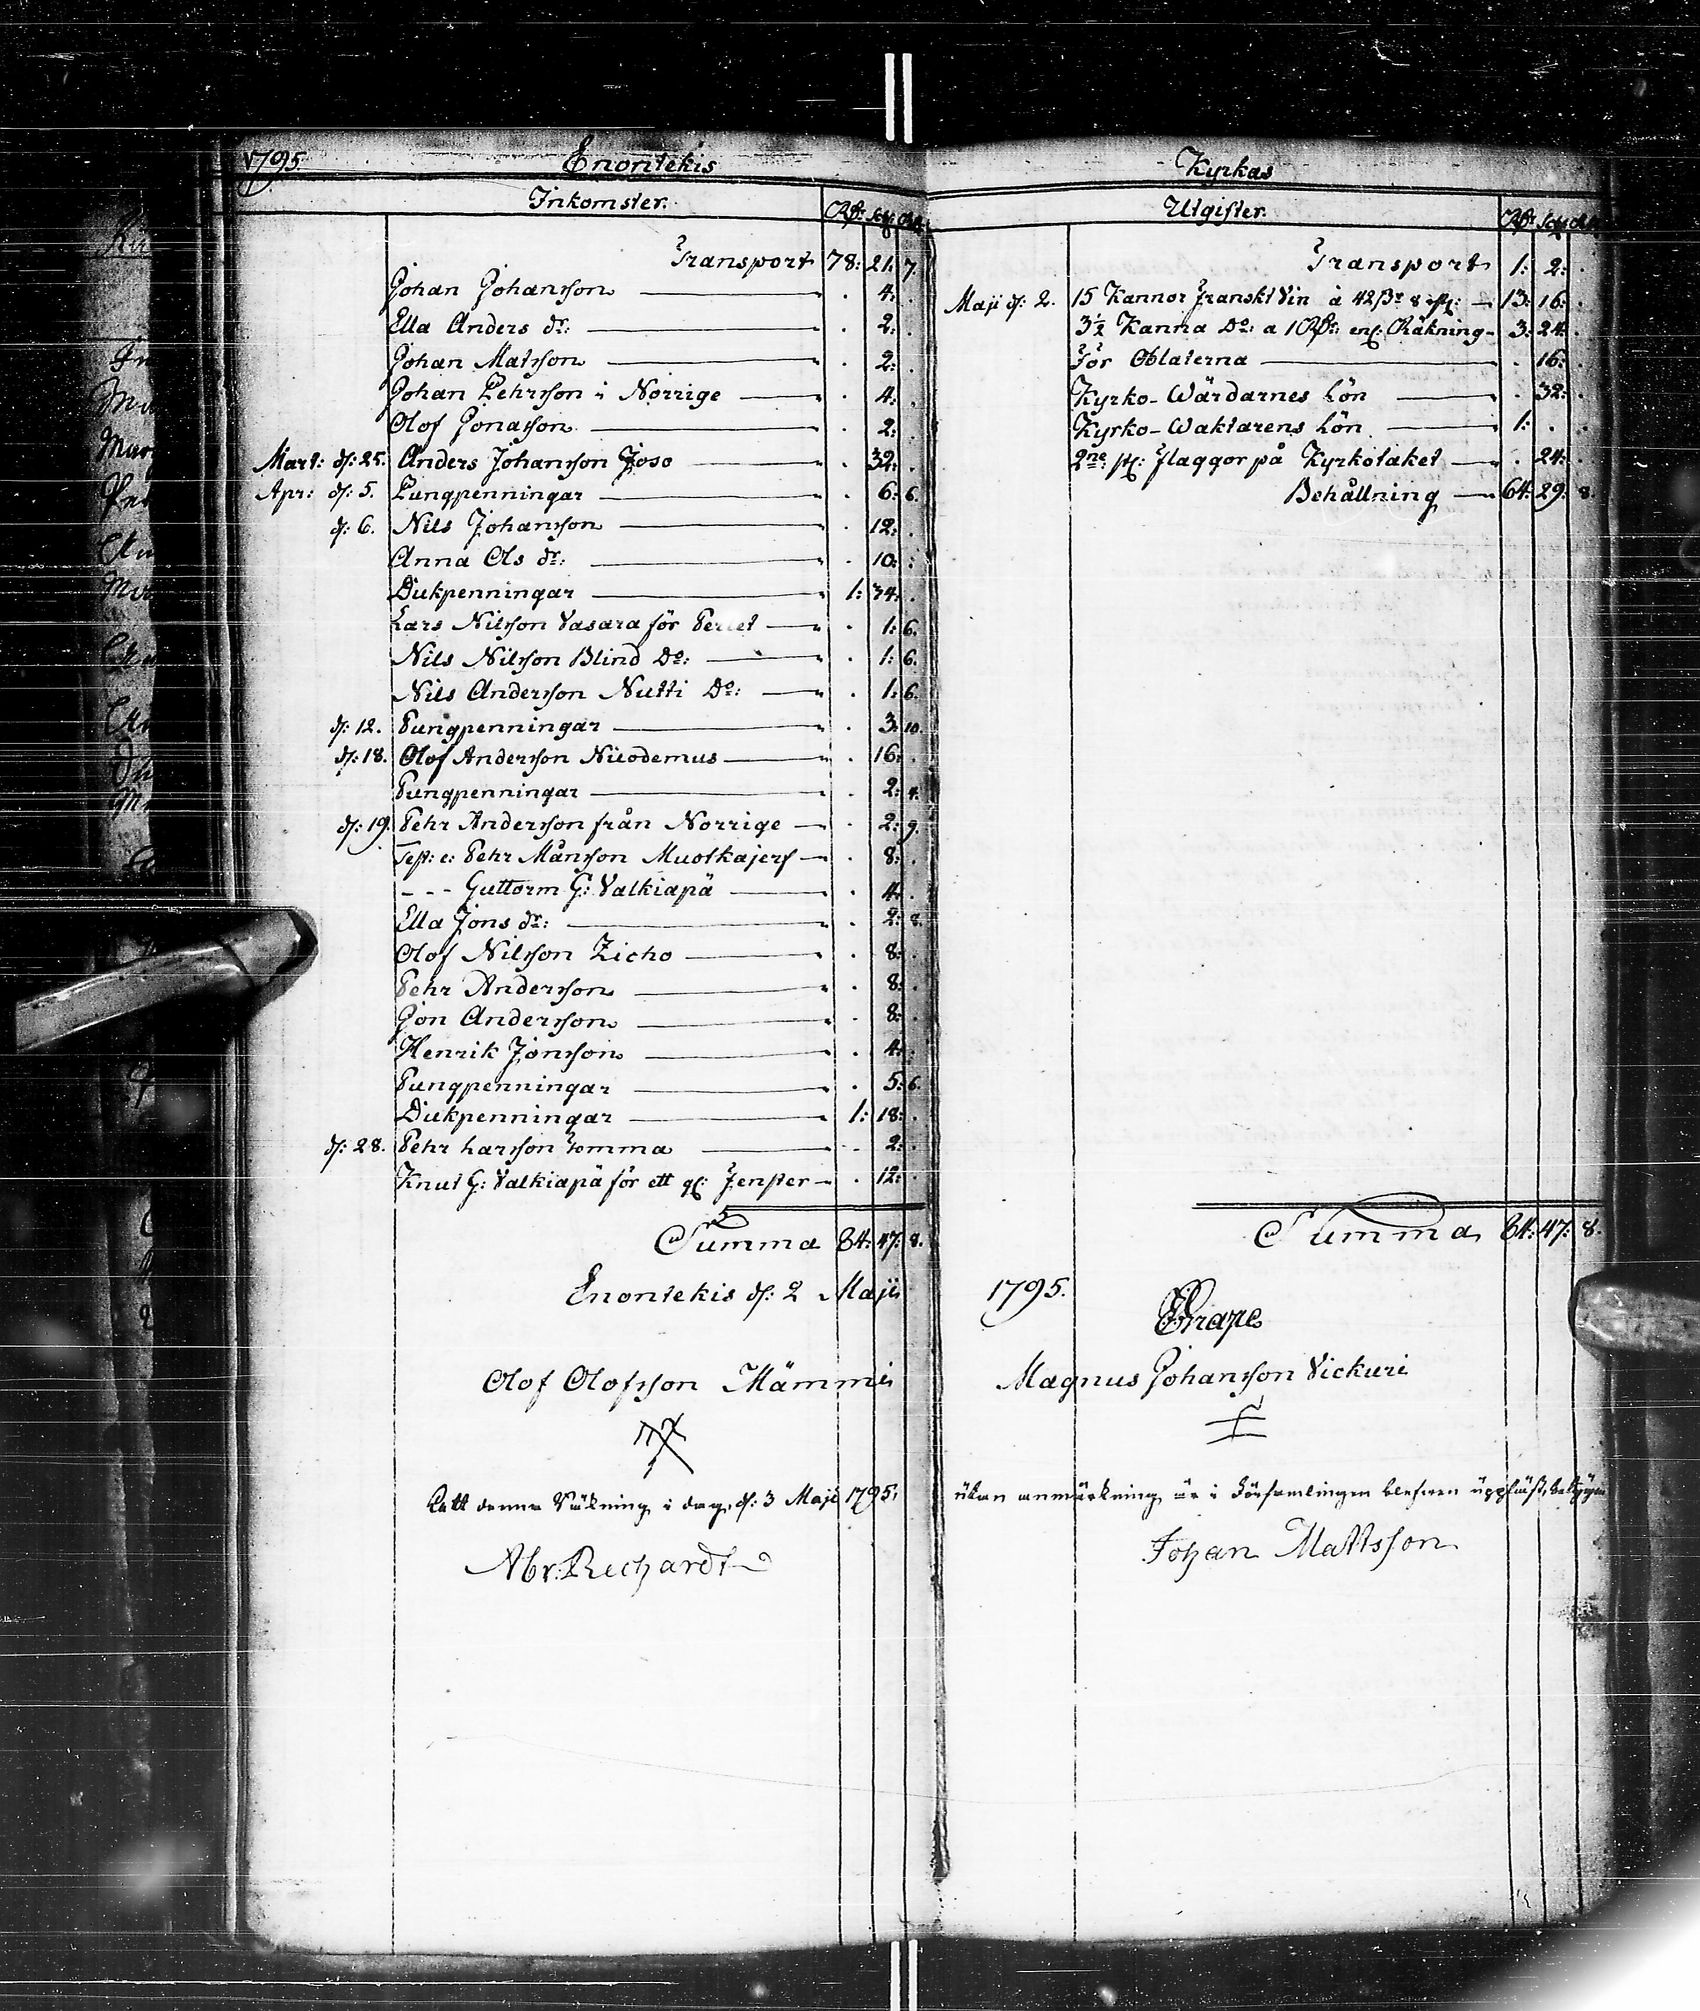 1795. Enontekis
Inkomster. Rdr: sk: rst:
Transport 78: 21: 7.
Johan Johansson . 4: .
Ella Anders dr: . 2: .
Johan Matsson . 2: .
Johan Pehrsson i Norrige . 4: .
Olof Jonasson . 2: .
Mart: d: 25. Anders Johansson Joso . 32: .
Apr: d: 5. Pungpenningar . 6: 6.
d: 6. Nils Johansson . 12: .
Anna Ols dr: . 10: .
Dukpenningar 1: 34: .
Lars Nilsson Vasara för . 1: 6.
Nils Nilsson Blind Do: . 1: 6.
Nils Andersson Nutti Do: . 1: 6.
d: 12. Pungpenningar . 3: 10.
d: 18. Olof Andersson Nicodemus . 16: .
Pungpenningar . 2: 4.
d: 19. Pehr Andersson från Norrige . 2: 9.
Test: e: Pehr Månsson Muotkajerf . 8: .
- - - Guttorm G: Valkiapä . 4: .
Ella Jons dr: . 2: 8.
Olof Nilsson Zicho . 8: .
Pehr Andersson . 8: .
Jon Andersson . 8: .
Henrik Jonsson . 4: .
Pungpenningar . 5: 6.
Dukpenningar 1: 18: .
d: 28. Pehr Larsson Tomma . 2: .
Knut G: Valkiapä för ett gl: Fenster . 12: .
Summa 84: 47: 8.
Enontekis d: 2 Maji
Olof Olofsson Mämmi
Att denna Räkning i dag, d: 3 Maji 1795,
Abr: Rechardt
Kyrkas
Utgifter. Rdr: sk: rst:
Transport 1: 2: .
Maji d: 2. 15 Kannor Franskt Vin à 42 sk: 8 rst: 13: 16: .
3½ Kanna Do: a 1 Rdr: enl: Räkning 3: 24: .
För Oblaterna . 16: .
Kyrko-Wärdarnes Lön . 32: .
Kyrko-Waktarens Lön 1: . .
2ne: st: Flaggor på Kyrkotaket . 24: .
Behållning 64: 29: 8.
Summa 84: 47: 8.
1795.
Magnus Johansson Vickuri
utan anmärkning är i Församlingen blefwen uppläst, betygar
Johan Mattsson